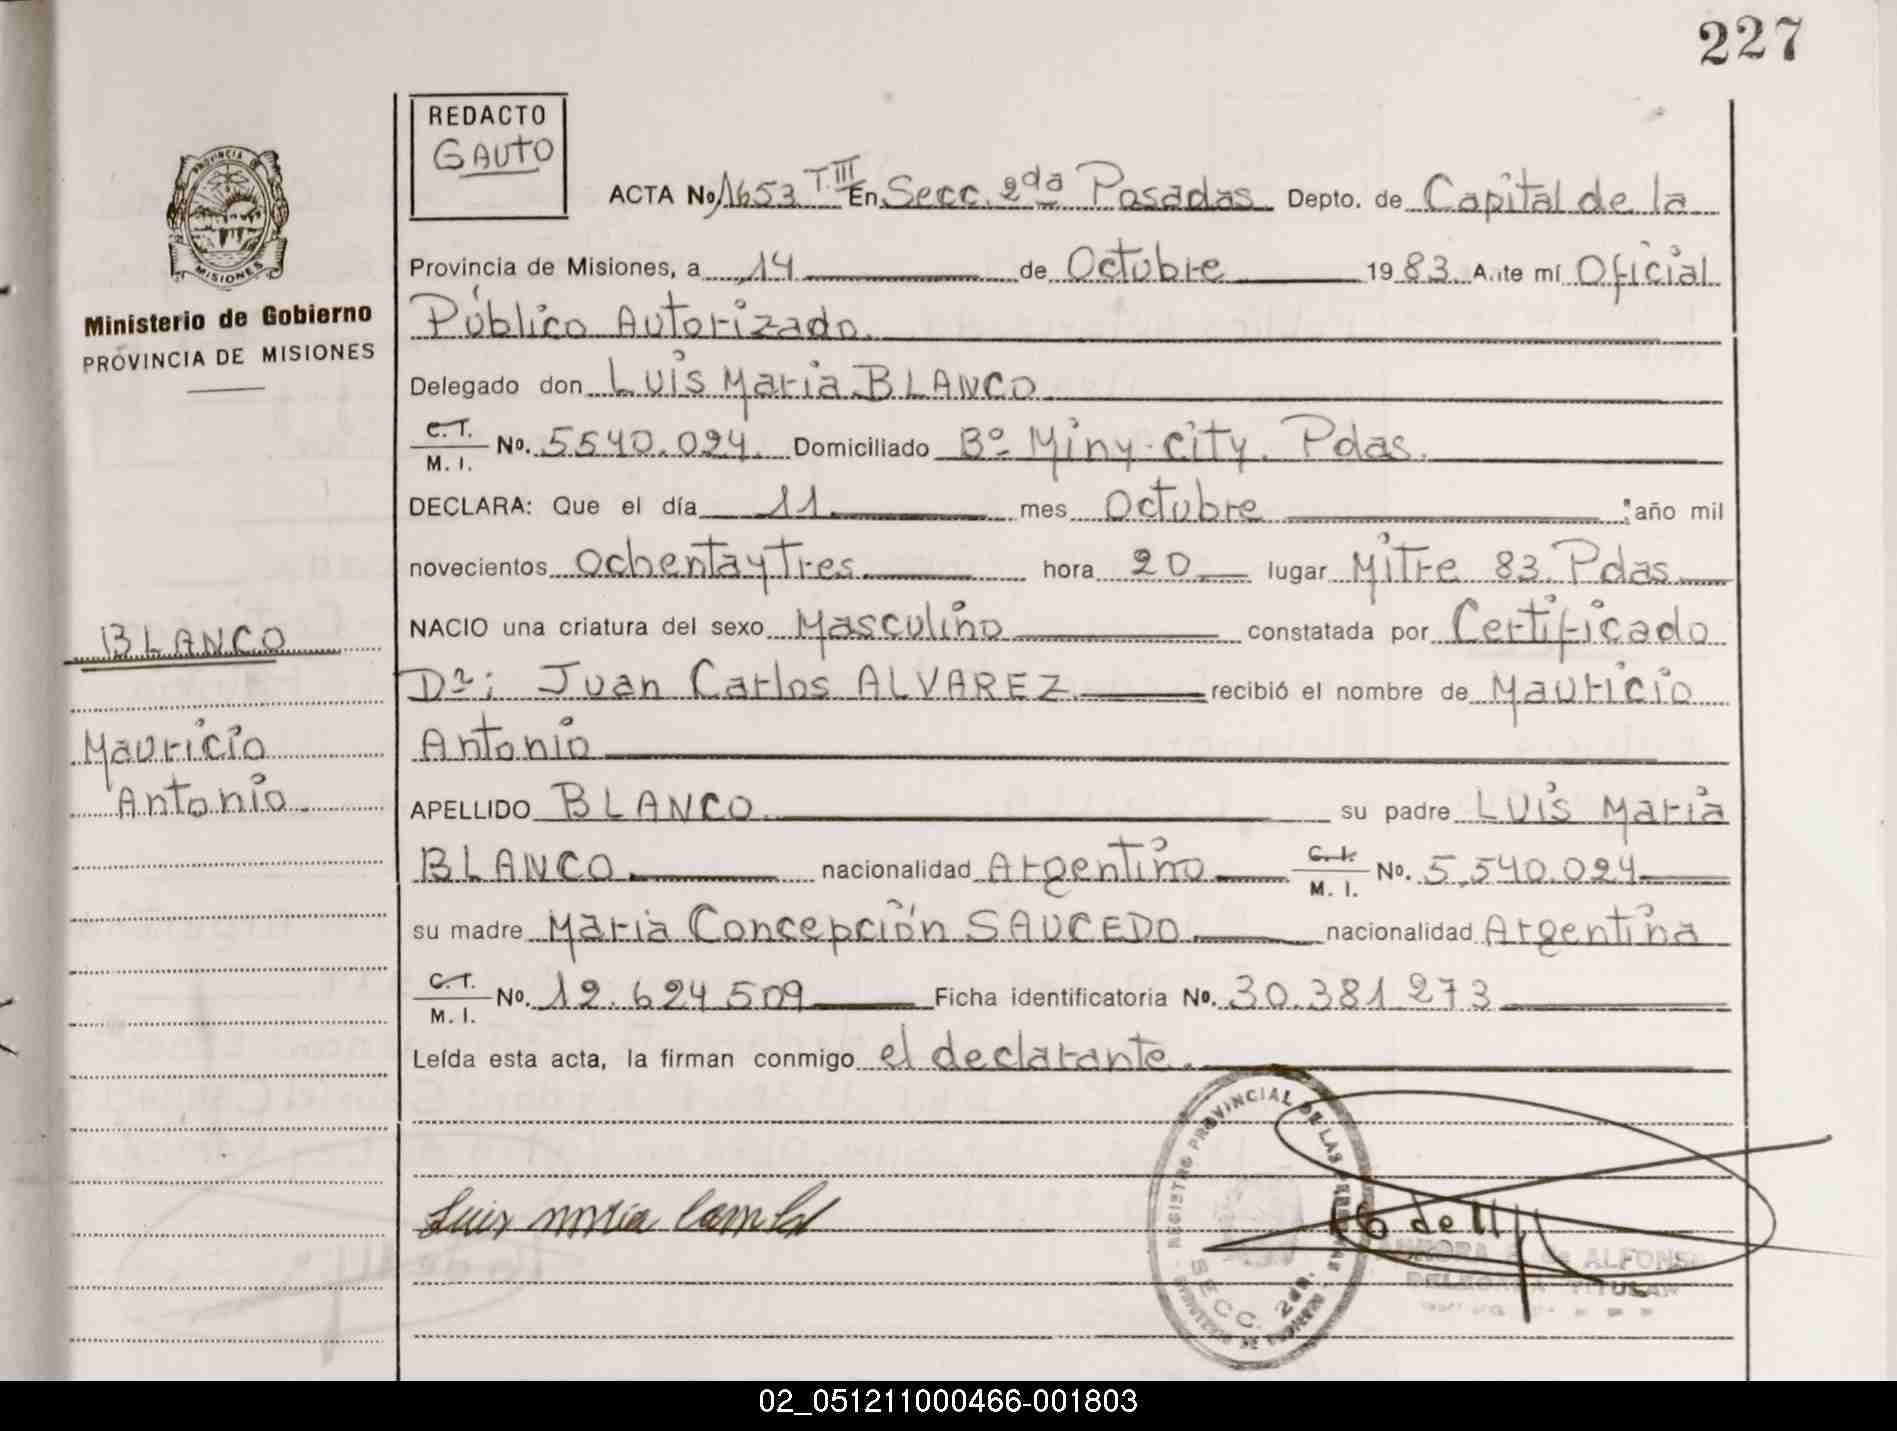 227
REDACTO
GAUTO
PROVINCIA DE
MISIONES
Ministerio de Gobierno
PROVINCIA DE MISIONES
ACTA No 1653 T.III En Secc. 2da Posadas Depto. de Capital de la
Provincia de Misiones, a 14 de Octubre 1983. Ante mí Oficial
Público Autorizado.
Delegado don Luis Maria BLANCO
C.I. M. I. No. 5540.024. Domiciliado Bº Miny-city. Pdas.
DECLARA: Que el día 11 mes Octubre año mil
novecientos Ochenta y Tres hora 20 lugar Mitre 83. Pdas.
NACIO una criatura del sexo Masculino constatada por Certificado
BLANCO
Dr: Juan Carlos ALVAREZ recibió el nombre de Mauricio
Mauricio
Antonio
Antonio
APELLIDO BLANCO su padre Luis Maria
BLANCO nacionalidad Argentino C.I. M. I. No. 5.540.024
su madre Maria Concepción SAUCEDO nacionalidad Argentina
C.I. M. I. No. 12.624.509 Ficha identificatoria No. 30.381.273
Leída esta acta, la firman conmigo el declarante.
REGISTRO PROVINCIAL DE LAS
SECC. 2da.
Luis Maria
de ALFONS
DELEGADA TITULAR
02_051211000466-001803